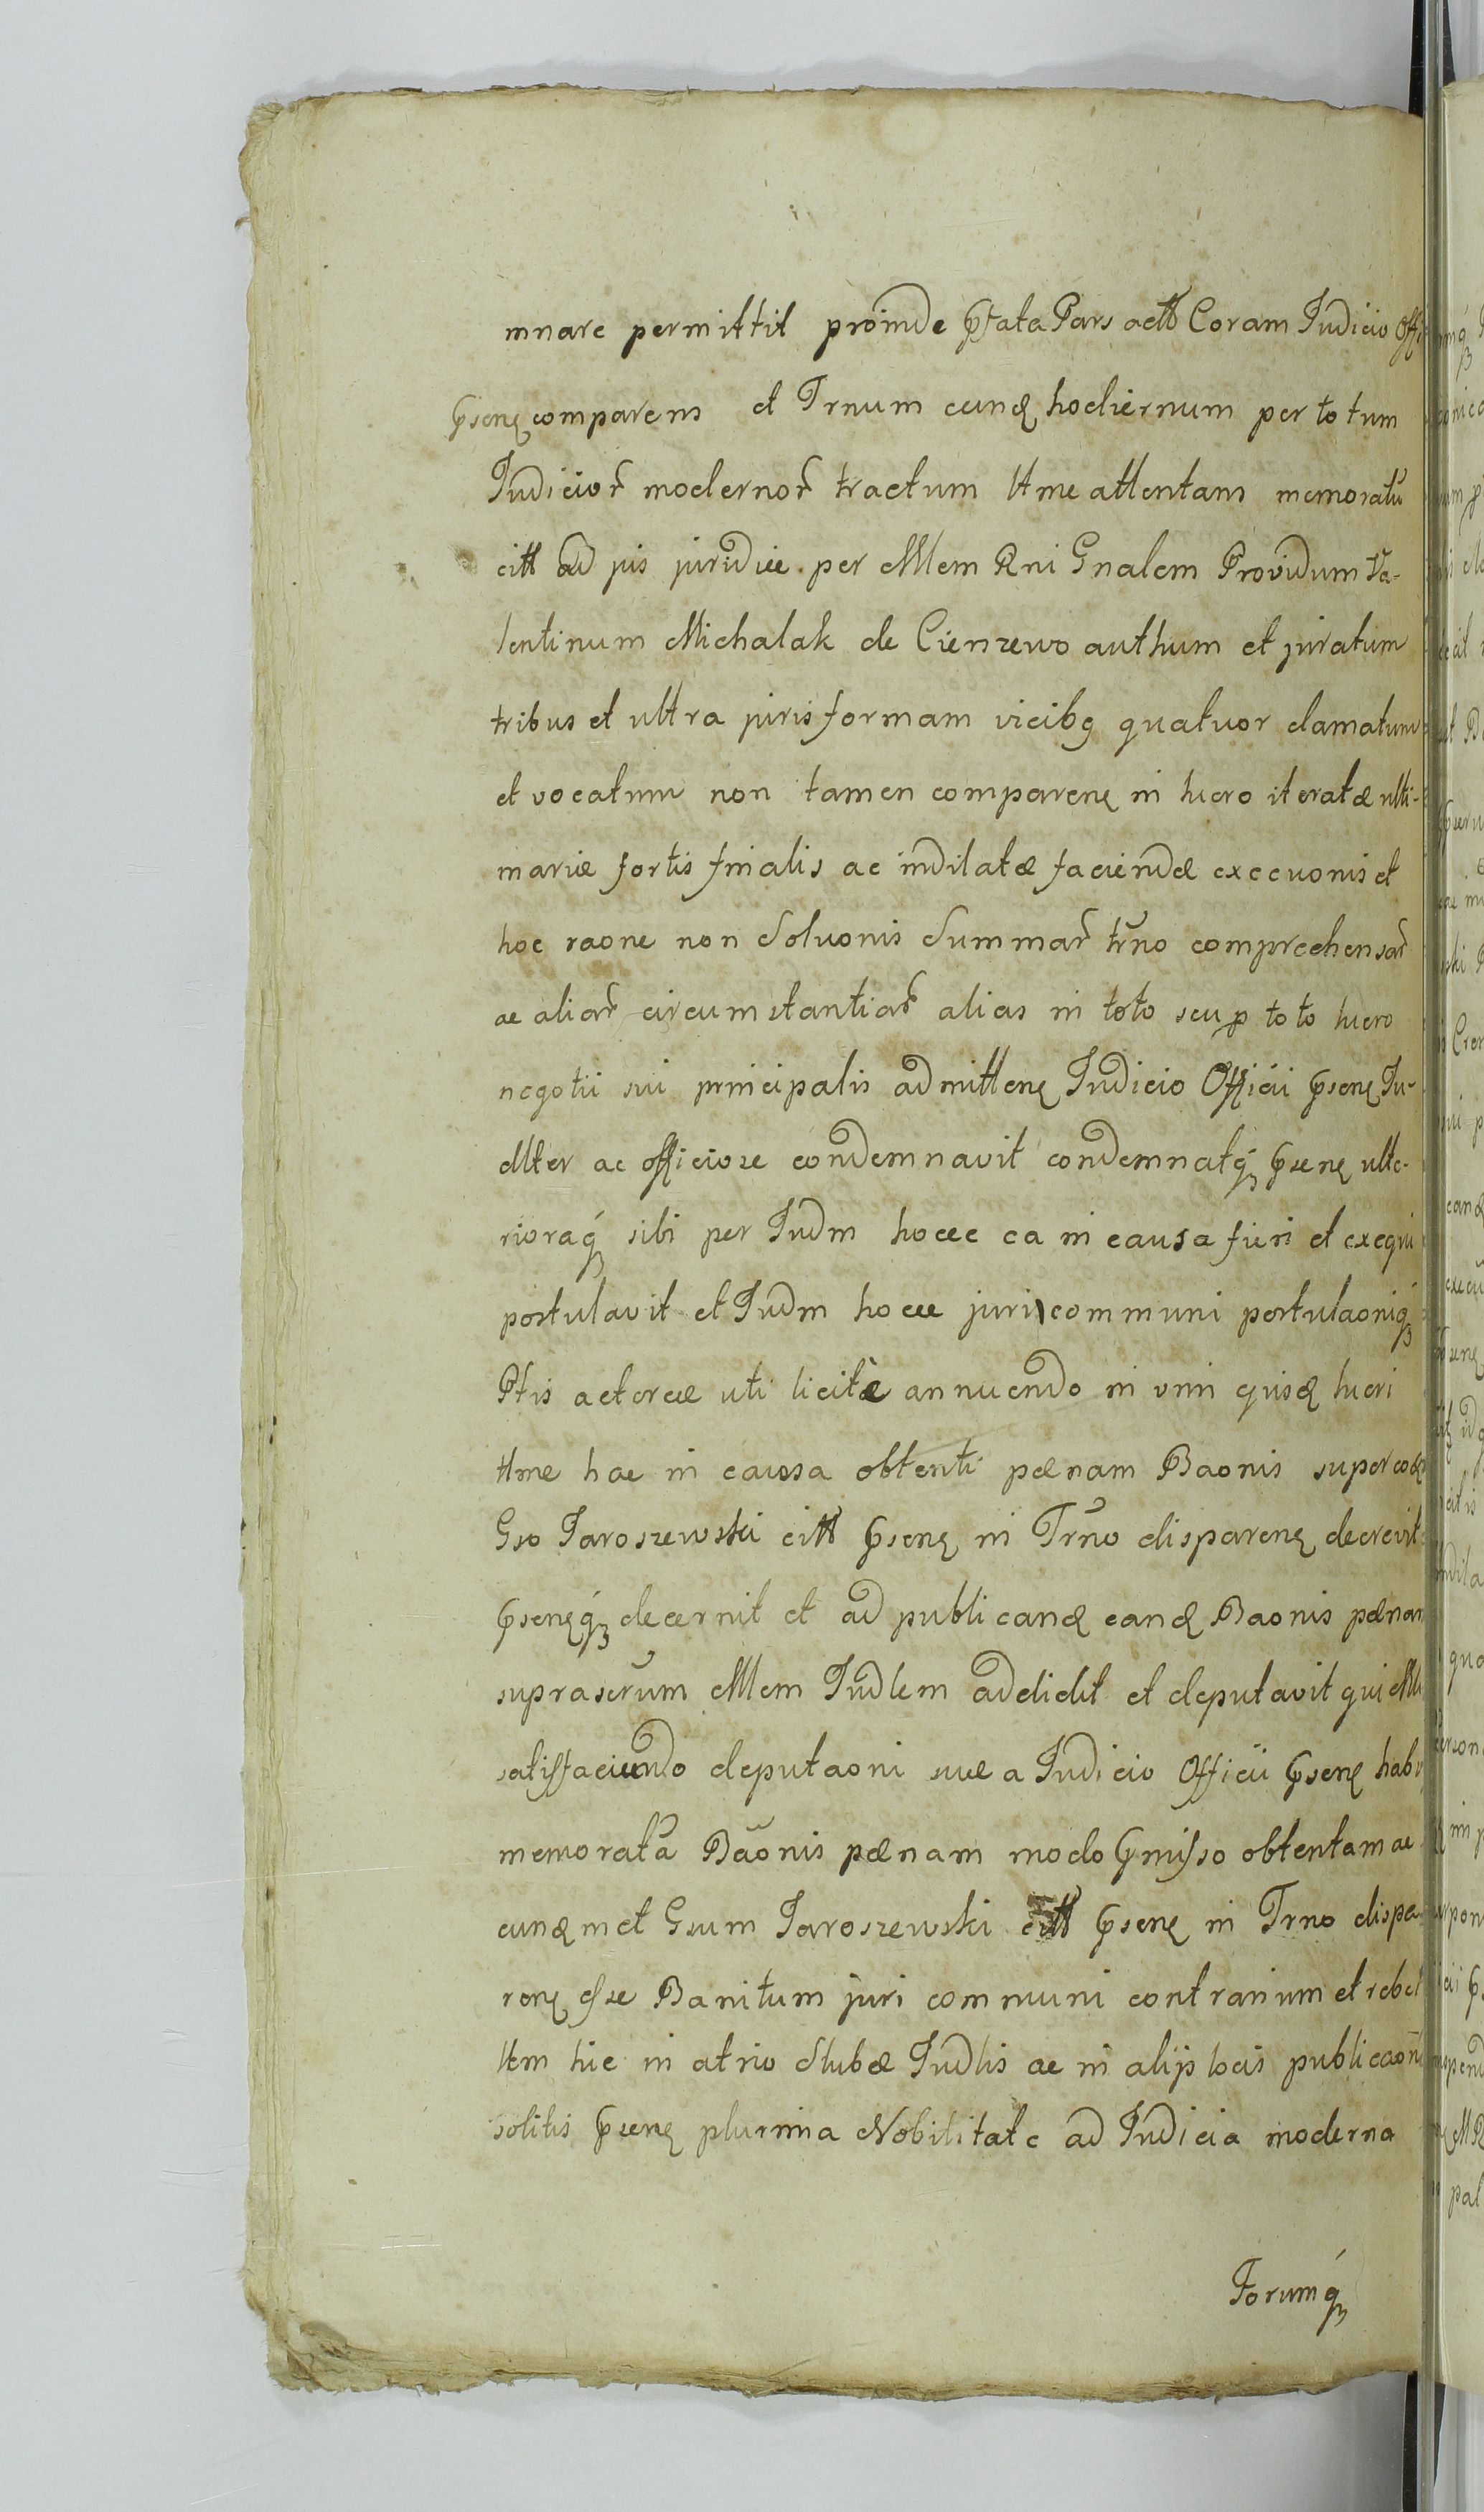 mnare permittit proinde pfata Pars actt Coram Judicio Offi
psenę comparens et Trnum eundę hodiernum per totum
Judicior modernor tractum ltme attentans memoratũ
citt ad jus juridice per Mlem Rni Gnalem Providum Va-
lentinum Michalak de Cienzewo authum et juratum
tribus et ultra juris formam vicibg quatuor clamatum
et vocatum non tamen comparenę in lucro iteratæ ulti-
mariæ fortis finalis ac indilatæ faciendæ execuonis et
hoc raone non Soluonis Summar trno comprehensar
ac aliar circumstantiar alias in toto seu p toto lucro
negotii sui principalis admittenę Judicio Officii psenę Ju-
dllter ac officiose condemnavit condemnatq psenę ulte-
rioraq sibi per Judm hocce ea in causa fieri et exequi
postulavit et Judm hocce juri communi postulaoniq
Ptis actoreæ uti licitæ annuendo in vim cujusę lucri
ltme hac in causa obtenti pænam Baonis super eodę
Gso Jaroszewski citt psenę in Trno disparenę decrevit
psenęq decernit et ad publicandę eandę Baonis pænam
suprascrum Mlem Judlem addidit et deputavit qui Mli
satisfaciendo deputaoni suæ a Judicio Officii psenę habi
memorata Baonis pænam modo pmisso obtentam ac
eundęmet Gsum Jaroszewski citt psenę in Trno dispa-
renę esse Banitum juri communi contrarium et rebel
ltem hic in atrio Stubæ Judlis ac in alijs locis publicaoni
solitis psenę plurima Nobilitate ad Judicia moderna
Forumq